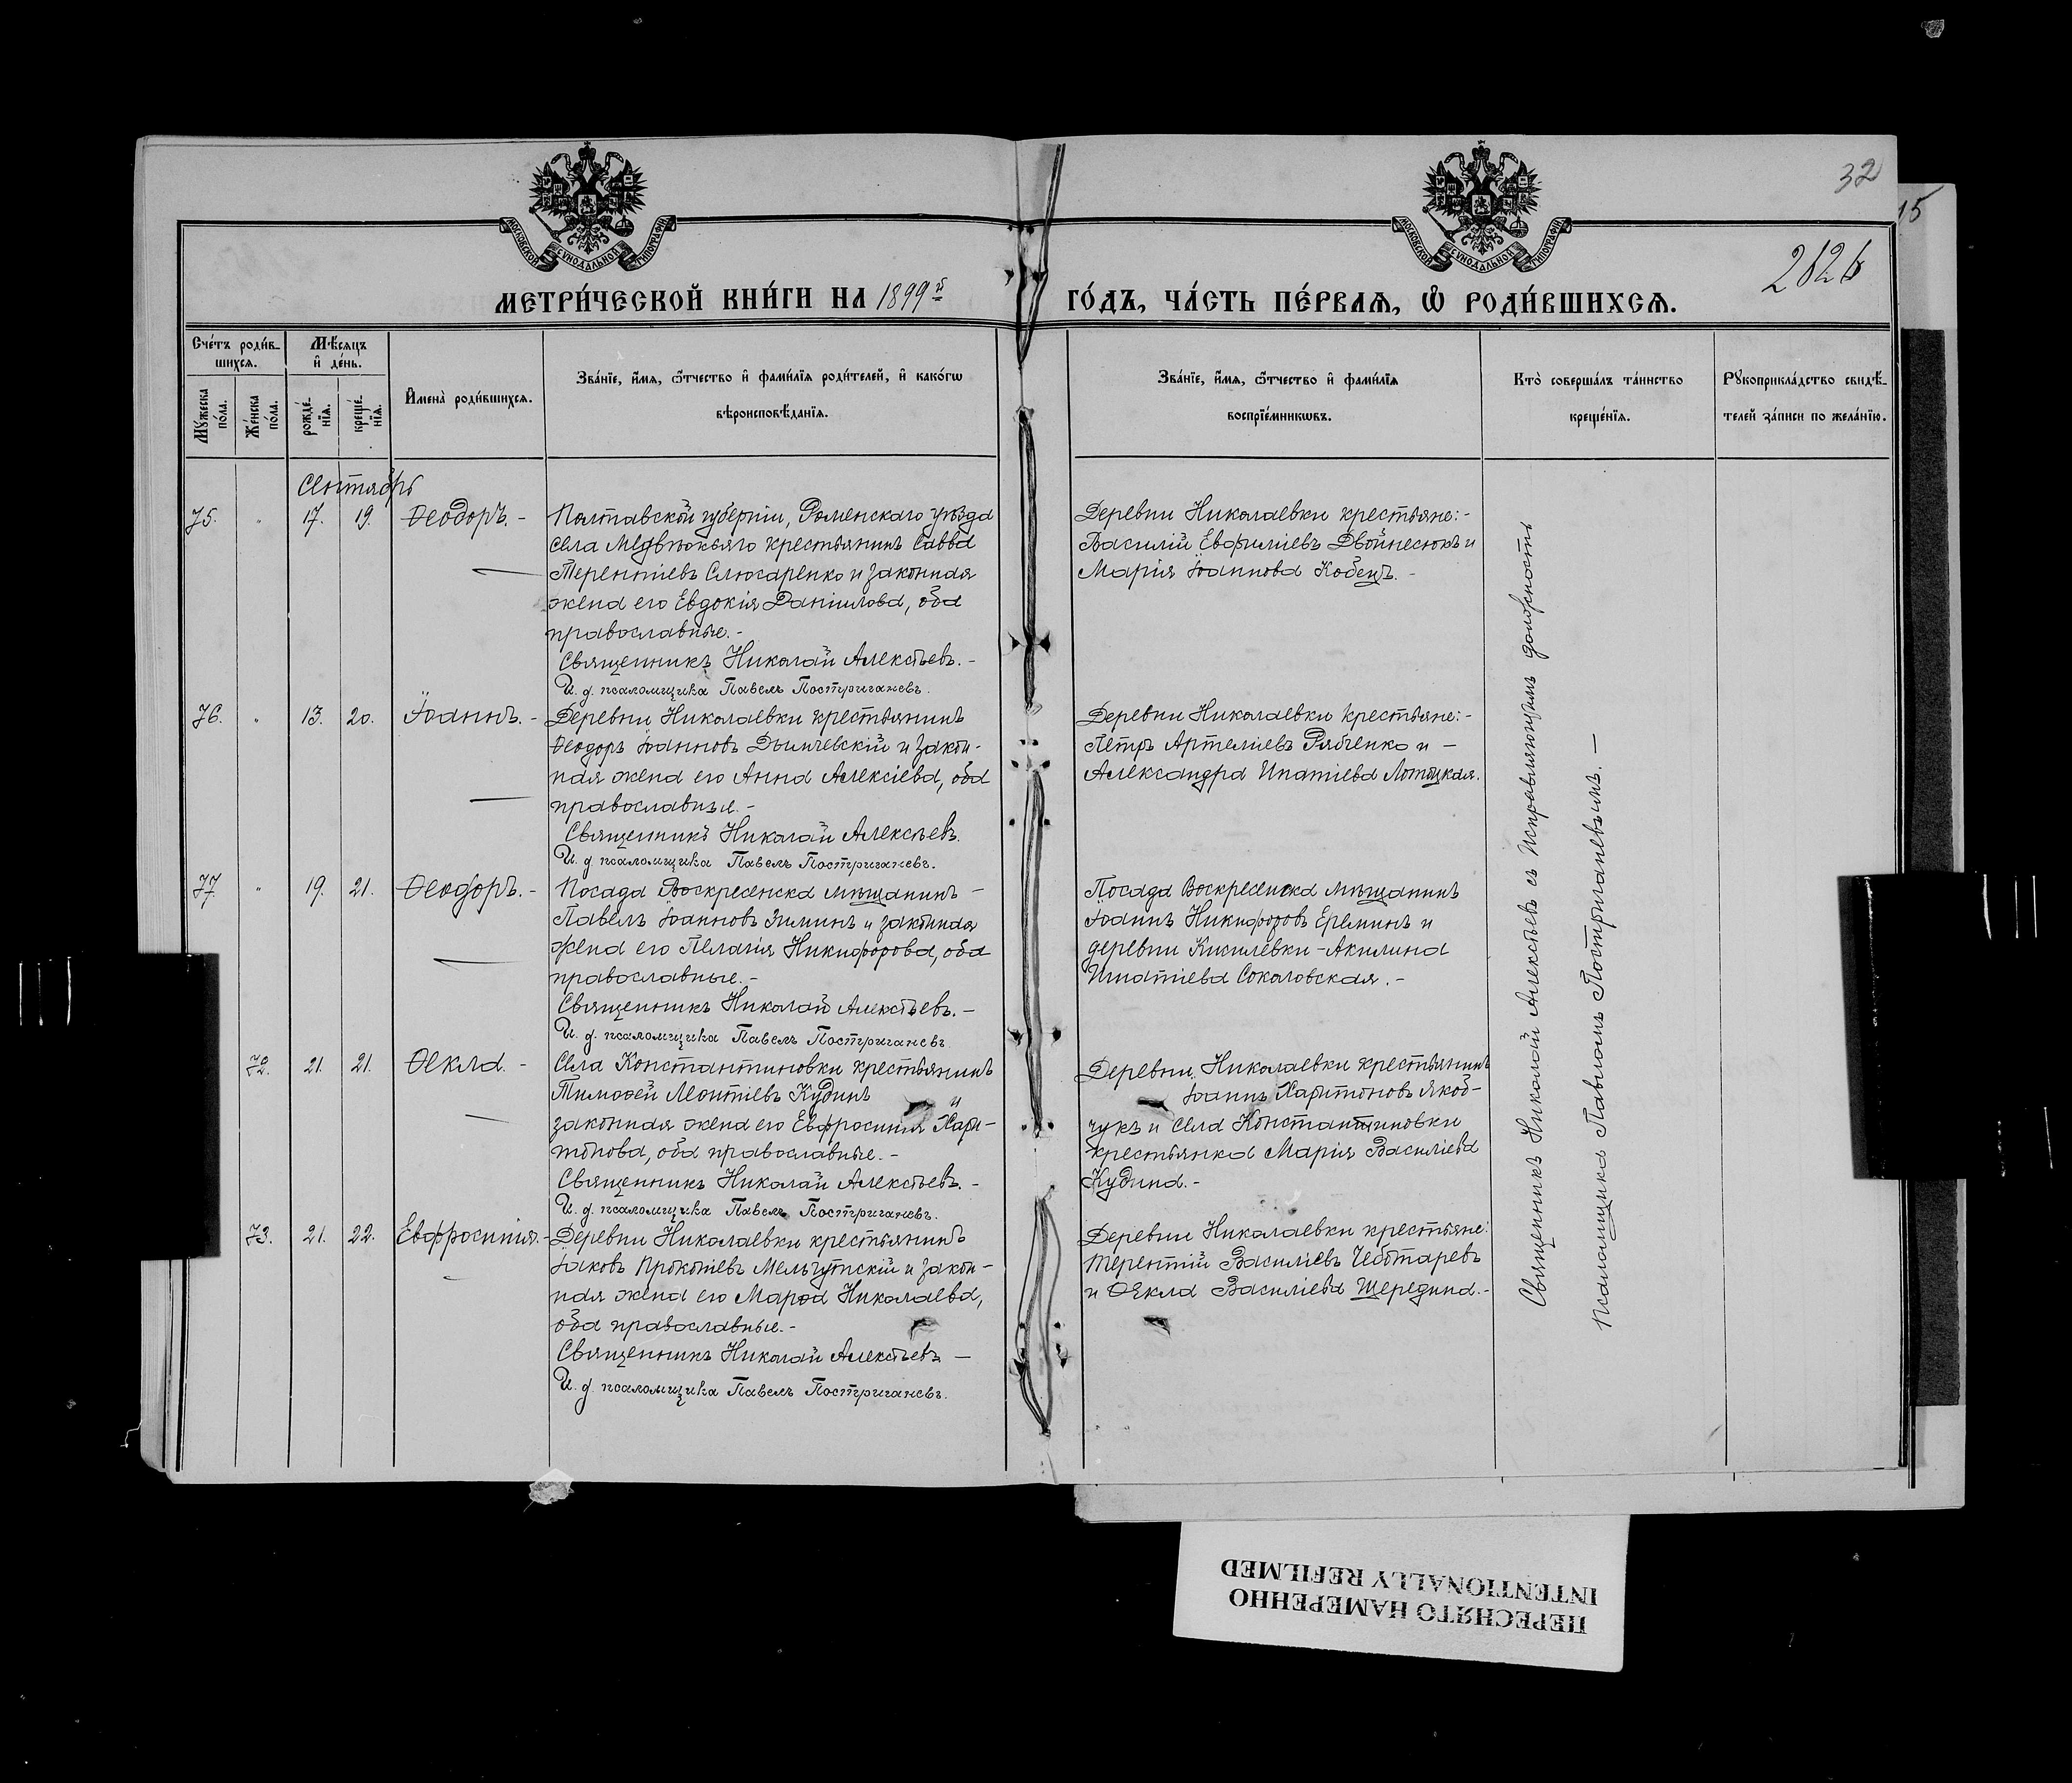 32
15
2826
МОСКОВСКОЙ СѴНОДАЛЬНОЙ ТИПОГРАФІИ
МОСКОВСКОЙ СѴНОДАЛЬНОЙ ТИПОГРАФІИ
МЕТРИ́ЧЕСКОЙ КНИ́ГИ НА 1899й ГО́ДЪ, ЧА́СТЬ ПЕ́РВАѦ, Ѽ РОДИ́ВШИХСѦ.
Сче́тъ роди́в-
шихсѧ.
Мѣ́сѧцъ
и҆ де́нь.
Мꙋ́жеска по́ла.
Же́нска по́ла.
рожде́-нїѧ.
креще́-нїѧ.
И҆мена̀ роди́вшихсѧ.
Зва́нїе, и҆́мѧ, ѻ҆́тчество и҆ фами́лїѧ роди́телей, и҆ како́гѡ
вѣроисповѣ́данїѧ.
Зва́нїе, и҆́мѧ, ѻ҆́тчество и҆ фами́лїѧ
воспрїе́мникѡвъ.
Кто̀ соверша́лъ та́инство
креще́нїѧ.
Рꙋкоприкла́дство свидѣ́-
телей за́писи по жела́нїю.
Сентябрь
75. " 17. 19. Ѳеодоръ. -
Полтавской губерніи, Роменскаго уѣзда
села Медвѣжьяго крестьянинъ Савва
Терентіевъ Слюсаренко и законная
жена его Евдокія Даніилова, оба
православные. -
Священникъ Николай Алексѣевъ. -
И. д. псаломщика Павелъ Постригачевъ.
Деревни Николаевки крестьяне: -
Василій Евфиміевъ Двойнесюкъ и
Марія Іоаннова Кобецъ. -
76. " 13. 20. Іоаннъ. -
Деревни Николаевки крестьянинъ
Ѳеодоръ Іоанновъ Дымчевскій и закон-
ная жена его Анна Алексіева, оба
православные. -
Священникъ Николай Алексѣевъ.
И. д. псаломщика Павелъ Постригачевъ.
Деревни Николаевки крестьяне: -
Петръ Артеміевъ Рябченко и -
Александра Ипатіева Лотоцкая.
77. " 19. 21. Ѳеодоръ. -
Посада Воскресенска мѣщанинъ -
Павелъ Іоанновъ Зиминъ и законная
жена его Пелагія Никифорова, оба
православные. -
Священникъ Николай Алексѣевъ. -
И. д. псаломщика Павелъ Постригачевъ
Посада Воскресенска мѣщанинъ
Іоаннъ Никифоровъ Ереминъ и
деревни Кисилевки - Акилина
Игнатіева Соколовская. -
72. 21. 21. Ѳекла. -
Села Константиновки крестьянинъ
Тимоѳей Леонтіевъ Кудинъ и
законная жена его Евфросинія Хари-
тонова, оба православные. -
Священникъ Николай Алексѣевъ. -
И. д. псаломщика Павелъ Постригачевъ.
Деревни Николаевки крестьянинъ
Іоаннъ Харитоновъ Якоб-
чукъ и села Константиновки
крестьянка Марія Василіева
Кудина. -
73. 21. 22. Евфросинія. -
Деревни Николаевки крестьянинъ
Іаковъ Прокопіевъ Мельгутскій и закон-
ная жена его Марѳа Николаева,
оба православные. -
Священникъ Николай Алексѣевъ -
И. д. псаломщика Павелъ Постригачевъ.
Деревни Николаевки крестьяне:
Терентій Василіевъ Чеботаревъ
и Ѳекла Василіева Щередина. -
Священникъ Николай Алексѣевъ съ исправляющимъ должность
псаломщика Павломъ Постригачевымъ. -
ПЕРЕСНЯТО НАМЕРЕННО
INTENTIONALLY REFILMED